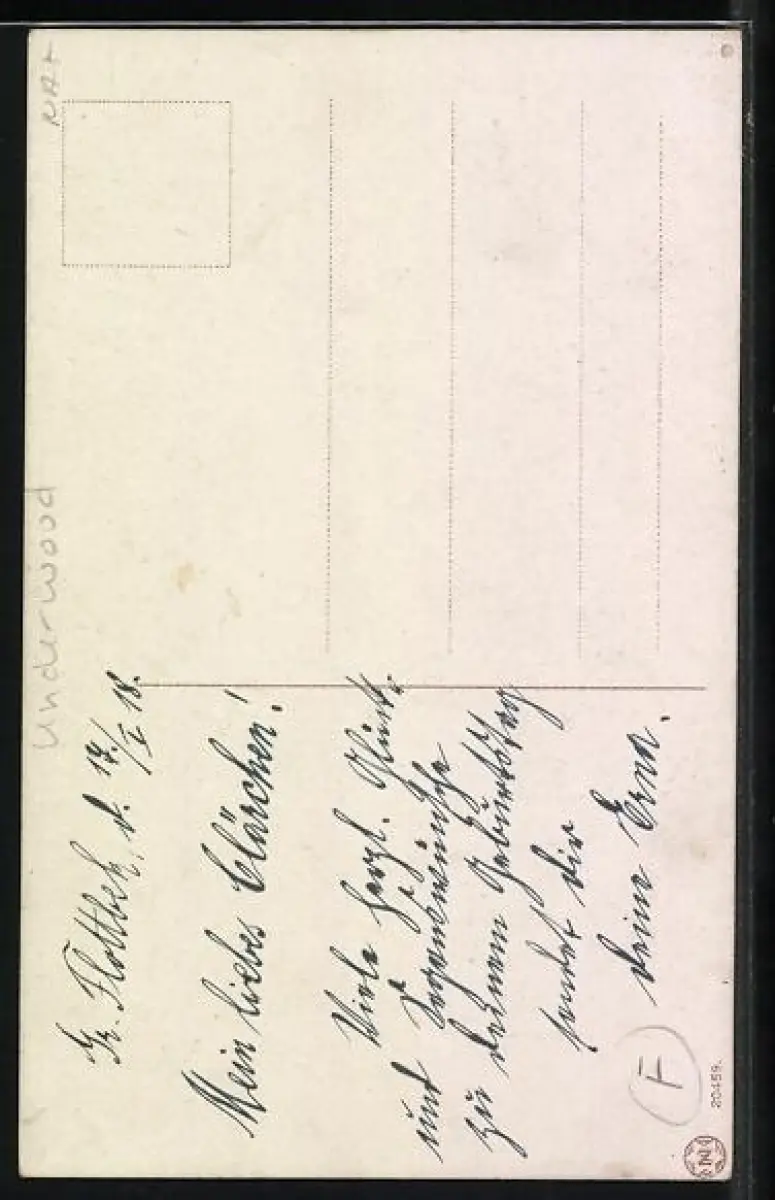 Gr. Flottbek, d. 17./I 18.
Mein liebes Clärchen!
Viele herzl. Glück-
und Segenswünsche
zu deinem Geburtstag
sendet dir
deine Erna.
Underwood
NA+
F
20459.